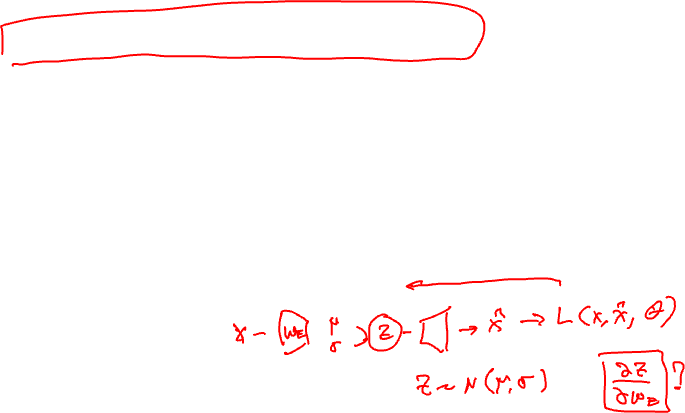 x - W_E μ σ ) Z - → x̂ → L(x, x̂, θ)
Z ~ N(μ, σ) ∂Z/∂W_E ?